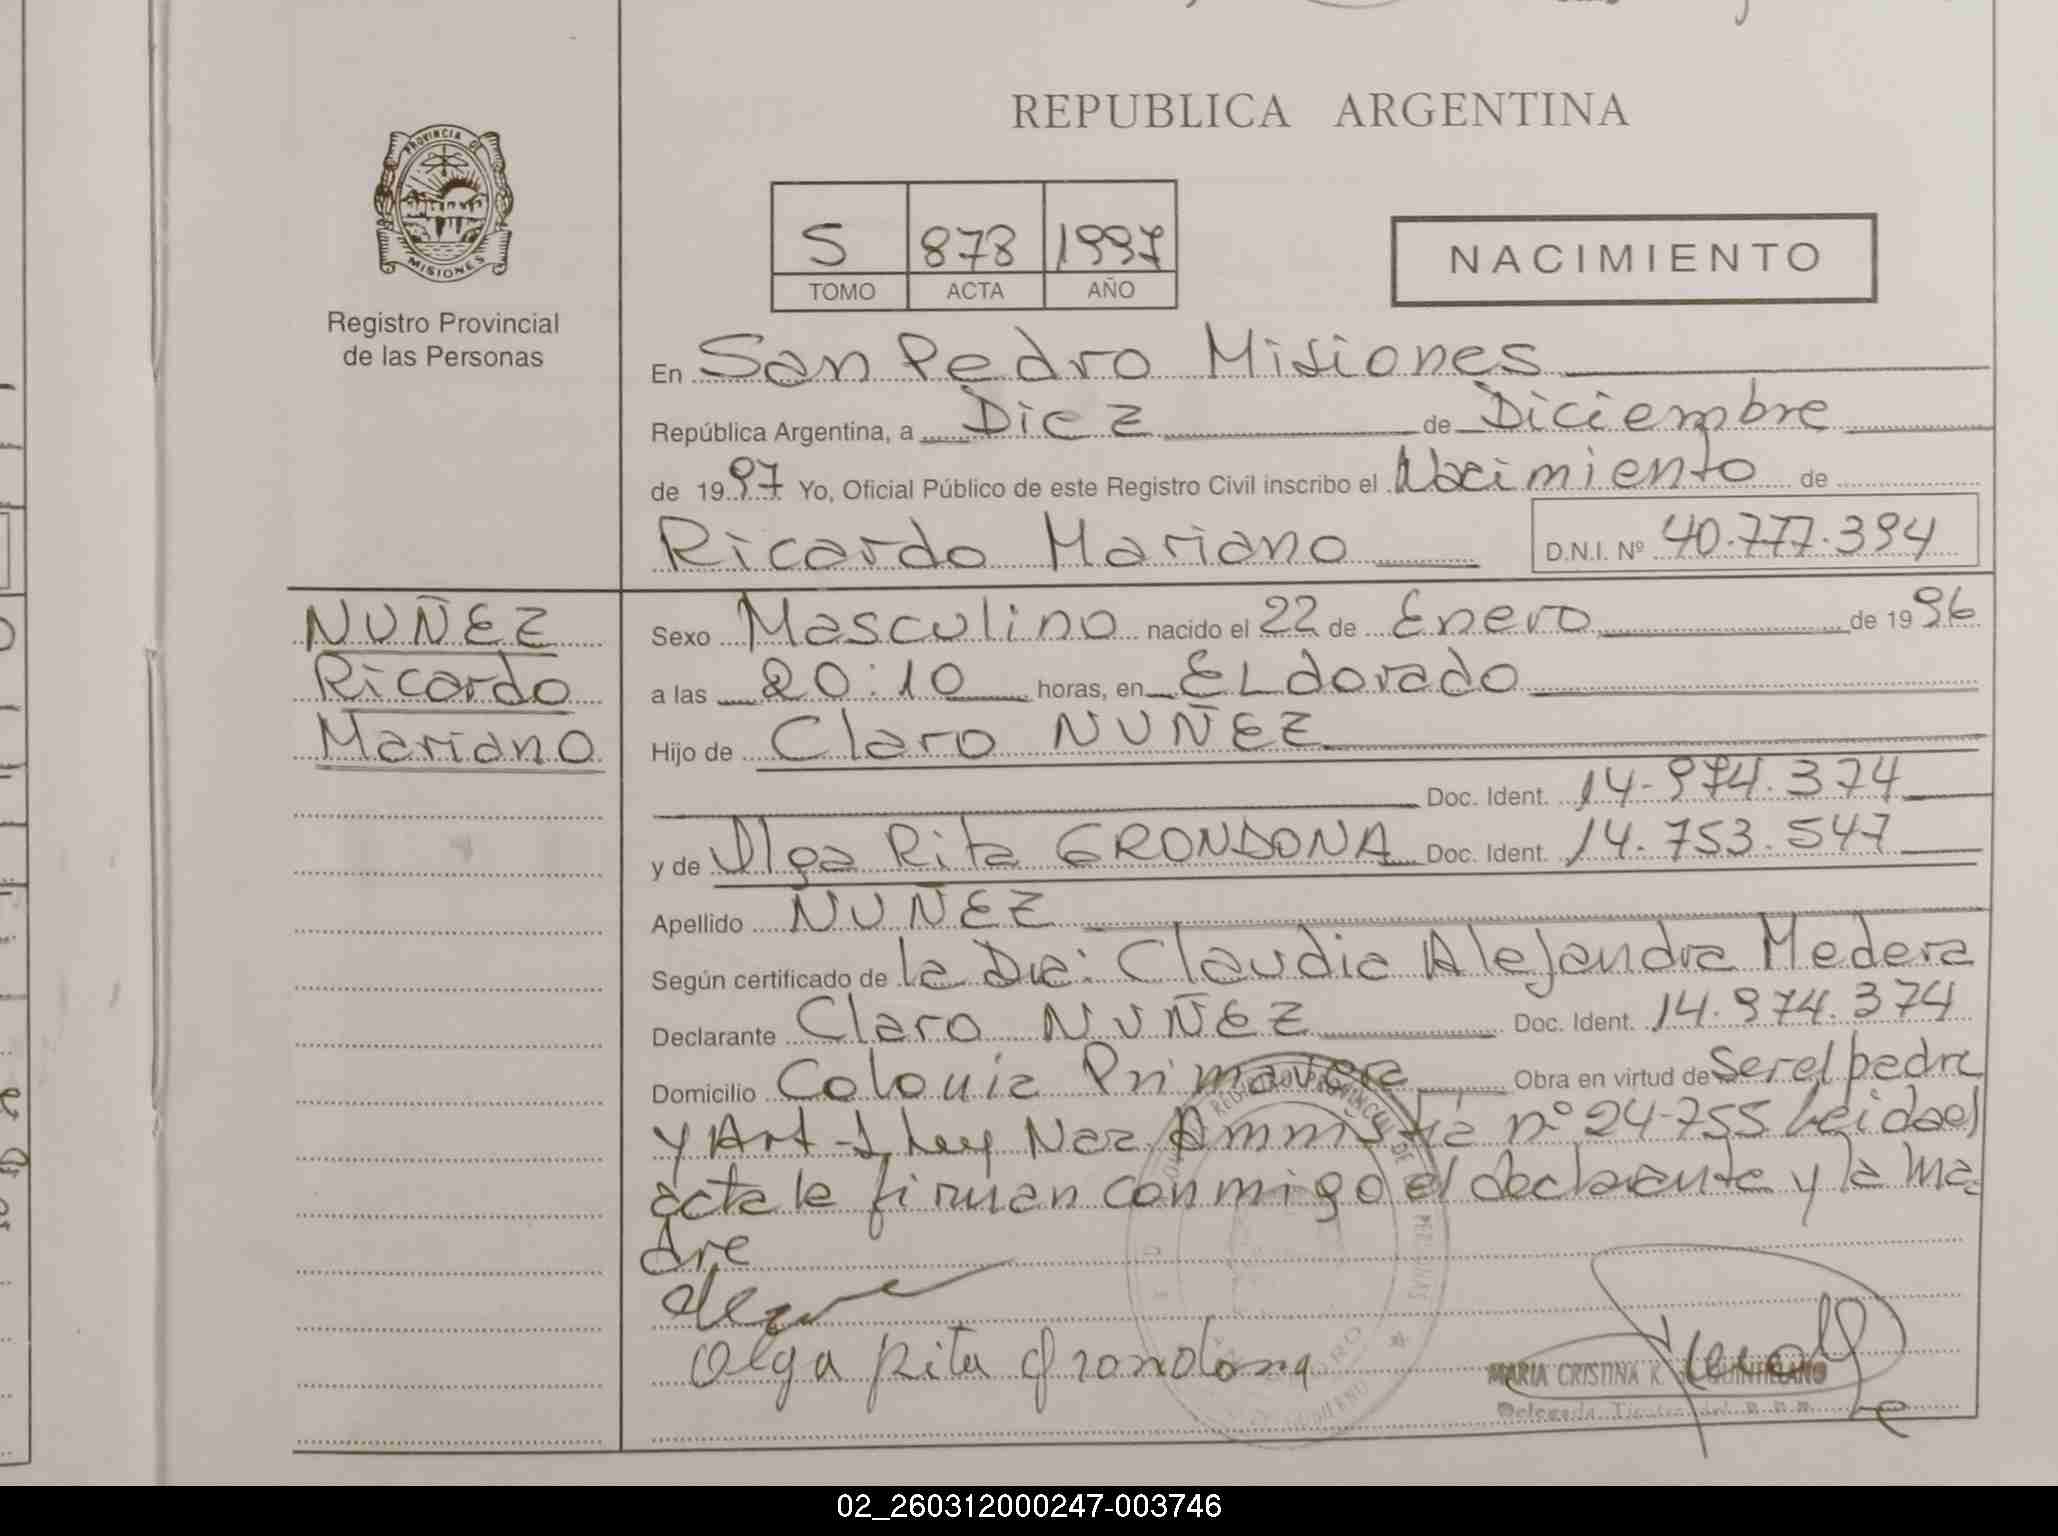 REPUBLICA ARGENTINA
PROVINCIA DE
MISIONES
Registro Provincial
de las Personas
5 878 1997
TOMO ACTA AÑO
NACIMIENTO
En San Pedro Misiones
República Argentina, a Diez de Diciembre
de 1997 Yo, Oficial Público de este Registro Civil inscribo el Nacimiento de
Ricardo Mariano D.N.I. Nº 40.777.394
NUÑEZ
Ricardo
Mariano
Sexo Masculino nacido el 22 de Enero de 1996
a las 20:10 horas, en ELdorado
Hijo de Claro NUÑEZ
Doc. Ident. 14.974.374
y de Olga Rita GRONDONA Doc. Ident. 14.753.547
Apellido NUÑEZ
Según certificado de la Dra: Claudia Alejandra Medera
Declarante Claro NUÑEZ Doc. Ident. 14.974.374
Domicilio Colonia Primavera Obra en virtud de Ser el padre
y Art 1 Ley Nac Amnistia nº 24.755 Leida el
acta la firman conmigo el declarante y la ma
dre
Olga Rita Grondona
MARIA CRISTINA K. DE QUINTILLANO
Delegada Titular del R.P.P.
02_260312000247-003746